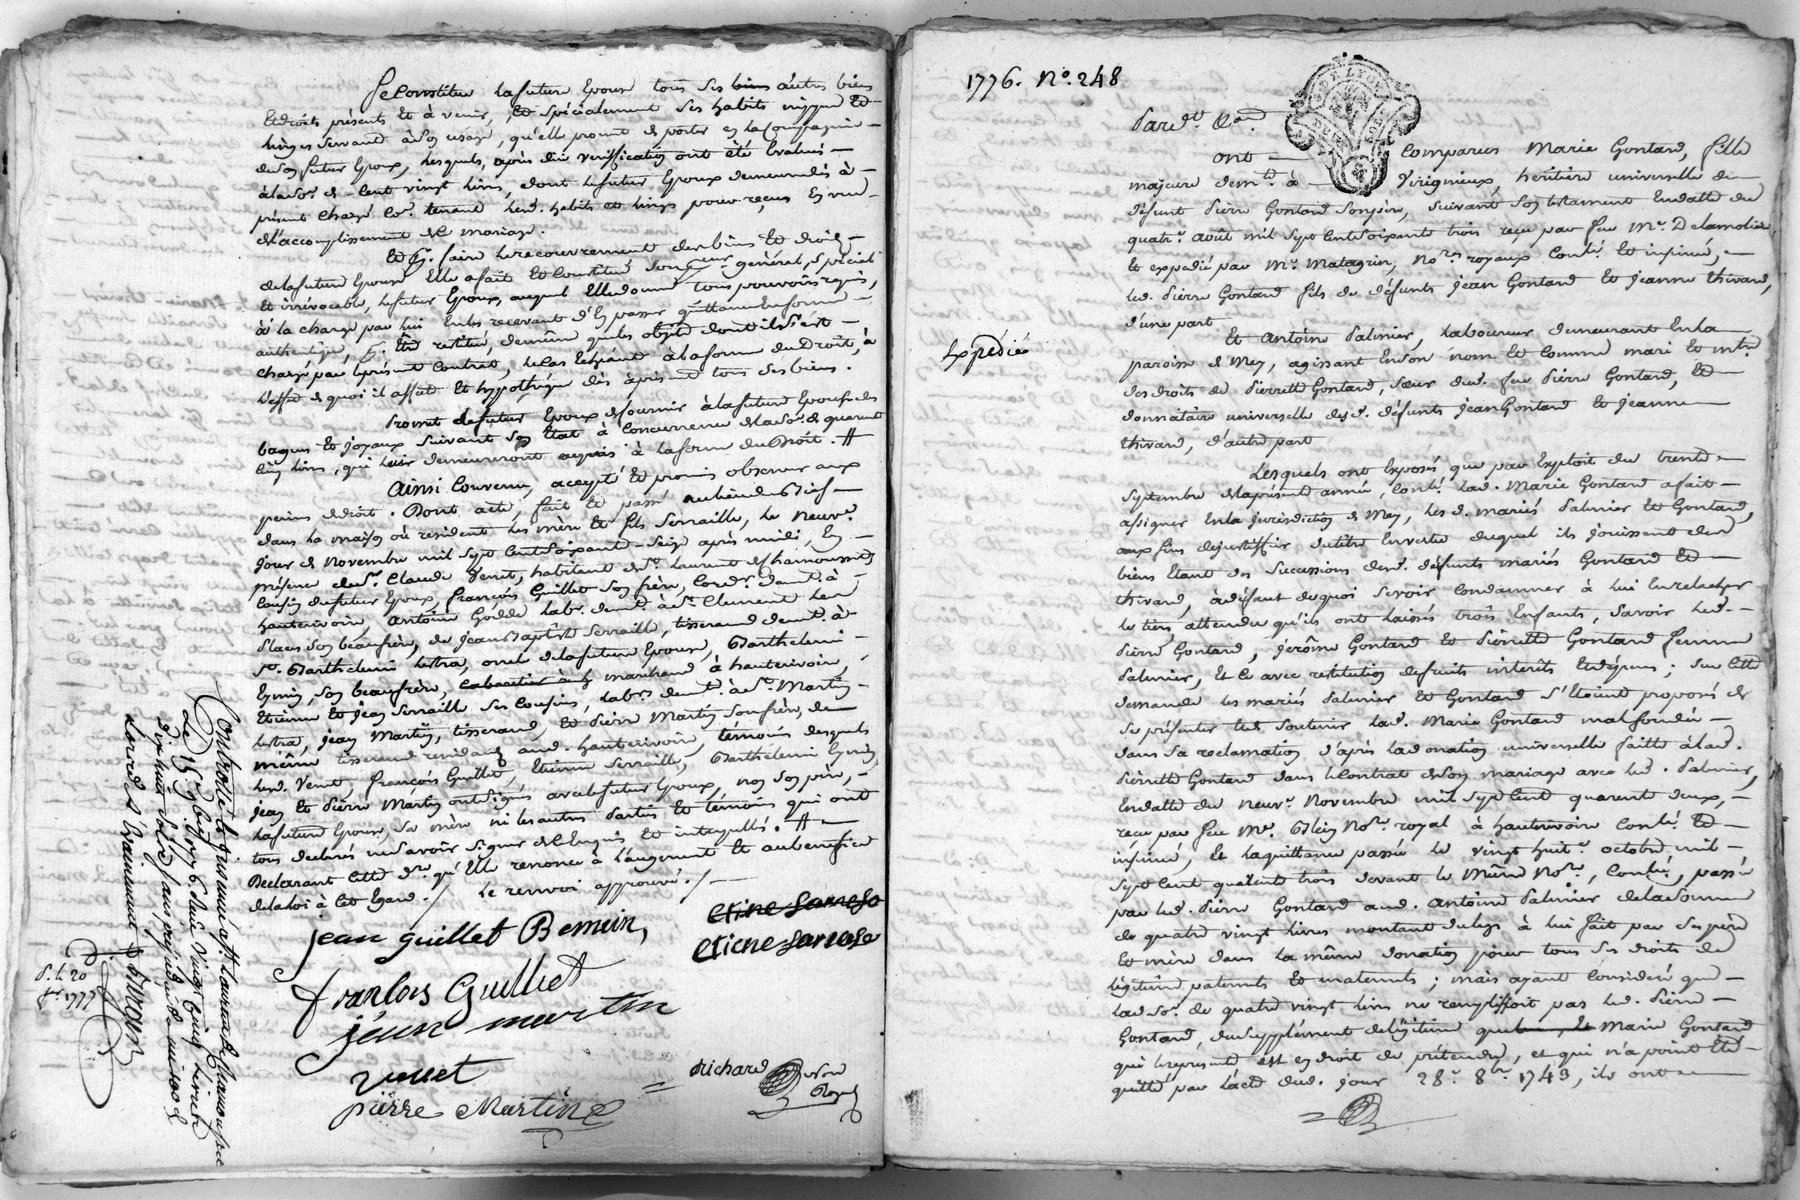 Se Constitue la future Epouse tous ses biens autres biens
Et droits présents Et à venir, Et Spécialement Ses habits nippes Et
linges Servant à Son usage, qu'elle promet de porter en la Compagnie
de Son futur Epoux, lesquels, après due verification ont été Evalués
à la So.e de Cent vingt livres, dont le futur Epoux demeure dès à
présent Chargé Co.e tenant lesd. habits et linges pour reçus En vue
de l'accomplissement de Mariage.
Et p.r faire le recouvrement des biens Et droits
de la future Epouse Elle a fait Et Constitué Son p.eur général, Spécial
Et irrévocable, le futur Epoux auquel Elle donne tous pouvoirs requis,
à la charge par lui En les recevant d'En passer quittance En forme
authentique, p.r Etre restitué, de même que les objets dont il S'est
chargé par le présent Contrat, le Cas Echéant à la forme du Droit, à
l'effet de quoi il affecte Et hypothèque dès à présent tous Ses biens.
Promet le futur Epoux de fournir à la future Epouse des
bagues Et joyaux Suivant Son Etat à Concurrence de la So.e de quarente
Cinq livres, qui lui demeureront acquis à la forme du Droit. #
Ainsi Convenu, accepté Et promis observer aux
peines de droit. Dont acte, fait Et passé au lieu de
dans la maison où resident les mère Et fils Serraille, le Neuv.e
jour de Novembre mil Sept Cent Soixante-Seize après midi, En
présence de S.r Claude Venet, habitant de S.t Laurent de Chamousset
Cousin du futur Epoux, françois Guillet Son frère, Cord.r dem.t à
hauterivoire, Antoine Godde lab.r dem.t à S.t Clement les
places Son beaufrère, de Jean Baptiste Serraille, tisserand dem.t à
S.t Barthelemi Lestra, oncle de la future Epouse, Barthelemi
Eymin, Son beaufrère, marchand à hauterivoire,
Etienne Et Jean Serraille Ses Cousins, lab.rs dem.t à S.t Martin
Lestra, Jean Martin, tisserand, Et Pierre Martin Son frère, de
même tisserand residans aud. hauterivoire, témoins desquels
led. Venet, françois Guillet, Etienne Serraille, Barthelemi Eymin,
Jean Et Pierre Martin ont Signés avec le futur Epoux, non Son père,
la future Epouse, Sa mère ni les autres Parties Et témoins qui ont
tous declarés ne Savoir Signer de Ce Enquis Et interpellés. #
Declarant Cette d.re qu'Elle renonce à l'augment Et au benefice
de la loi à Cet Egard. / le renvoi approuvé. /
jean guillet Bemin,
etiene Saraeso
etiene Saraese
francois Guilliet
jean martin
venet
pierre Martin
Richard No.re Royal
Controllé
Le 15 9.bre 1776. Reçu Vingt Cinq Livres
dix huit Sols Sans prejudice
S. le 20
1777
1776. N.o 248
DE LYON
DEUX SOLS
Pard.t &a.
ont Comparus Marie Gontard, fille
majeure dem.te à Virignieux, heritière universelle de
défunt Pierre Gontard Son père, Suivant Son testament En datte du
quatr.e août mil Sept Cent Soixante trois reçu par feu M.e Delamolière
Et expedié par M.e Matagrin, No.res royaux Contr.lé Et insinué,
led. Pierre Gontard fils de défunts Jean Gontard Et Jeanne thivard,
d'une part
Expédiée
Et Antoine Palmier, laboureur demeurant En la
paroisse de Mey, agissant En Son nom Et Comme mari Et m.tre
des droits de Pierrette Gontard, Sœur dud. feu Pierre Gontard, Et
donnataire universelle desd. défunts Jean Gontard Et Jeanne
thivard, d'autre part
Lesquels ont Exposés que par Exploit du trente
Septembre de la présente année, Contr.lé lad. Marie Gontard a fait
assigner En la Jurisdiction de Mey, les d. mariés Palmier Et Gontard,
aux fins de justiffier du titre En vertu duquel ils jouissent des
biens Etant des Successions desd. défunts mariés Gontard Et
thivard, à défaut de quoi Se voir Condamner à lui En relacher
le tiers attendu qu'ils ont laissés trois Enfants, Savoir led.
Pierre Gontard, Jerôme Gontard Et Pierrette Gontard femme
Palmier, Et Ce avec restitution de fruits interets Et dépens; Sur Cette
demande les mariés Palmier Et Gontard S'étoient proposés de
Se présenter Et de Soutenir lad. Marie Gontard mal fondée
dans Sa reclamation d'après la donation universelle faitte à lad.
Pierrette Gontard dans le Contrat de Son mariage avec led. Palmier,
En datte du neuv.e Novembre mil Sept Cent quarente deux,
reçu par feu M.e Blein No.re royal à hauterivoire Contr.lé Et
insinué, Et la quittance passée le vingt huit.e octobre mil
Sept Cent quarente trois devant le même No.re, Contr.lée, passée
par led. Pierre Gontard aud. Antoine Palmier de la Somme
de quatre vingt livres montant du legs à lui fait par Ses père
Et mère dans la même donation pour tous Ses droits de
légitime paternels Et maternels; mais ayant Consideré que
lad. So.e de quatre vingt livres ne remplissoit pas led. Pierre
Gontard, du Supplément de légitime que Marie Gontard
qui le représente est En droit de prétendre, et qui n'a point Eté
quitté par l'acte dud. jour 28.e 8.bre 1743, ils ont